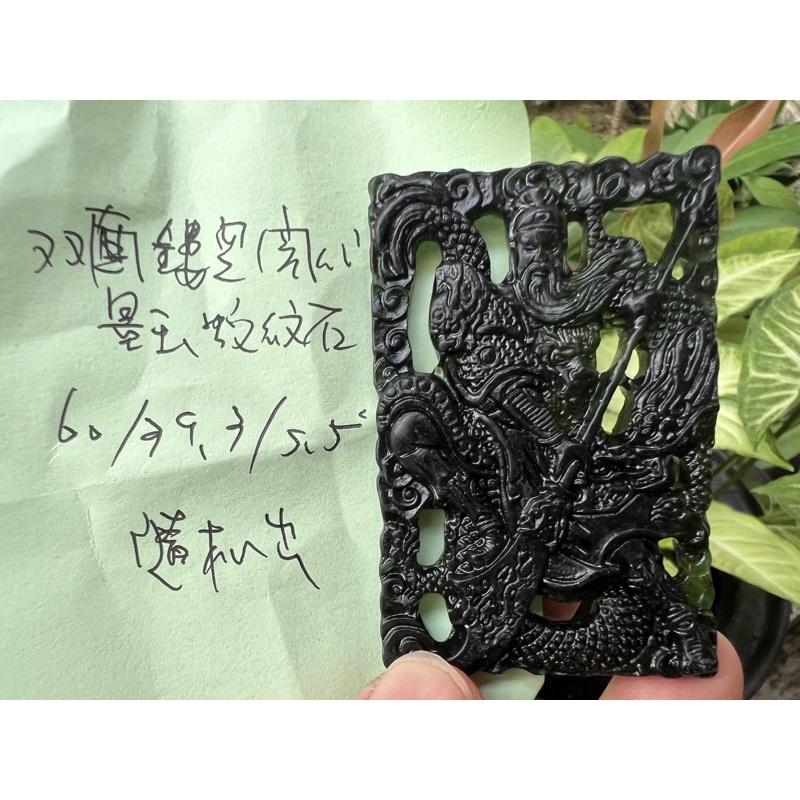 双面鏤空关公
墨玉蛇紋石
60/39.3/5.5
隨机出